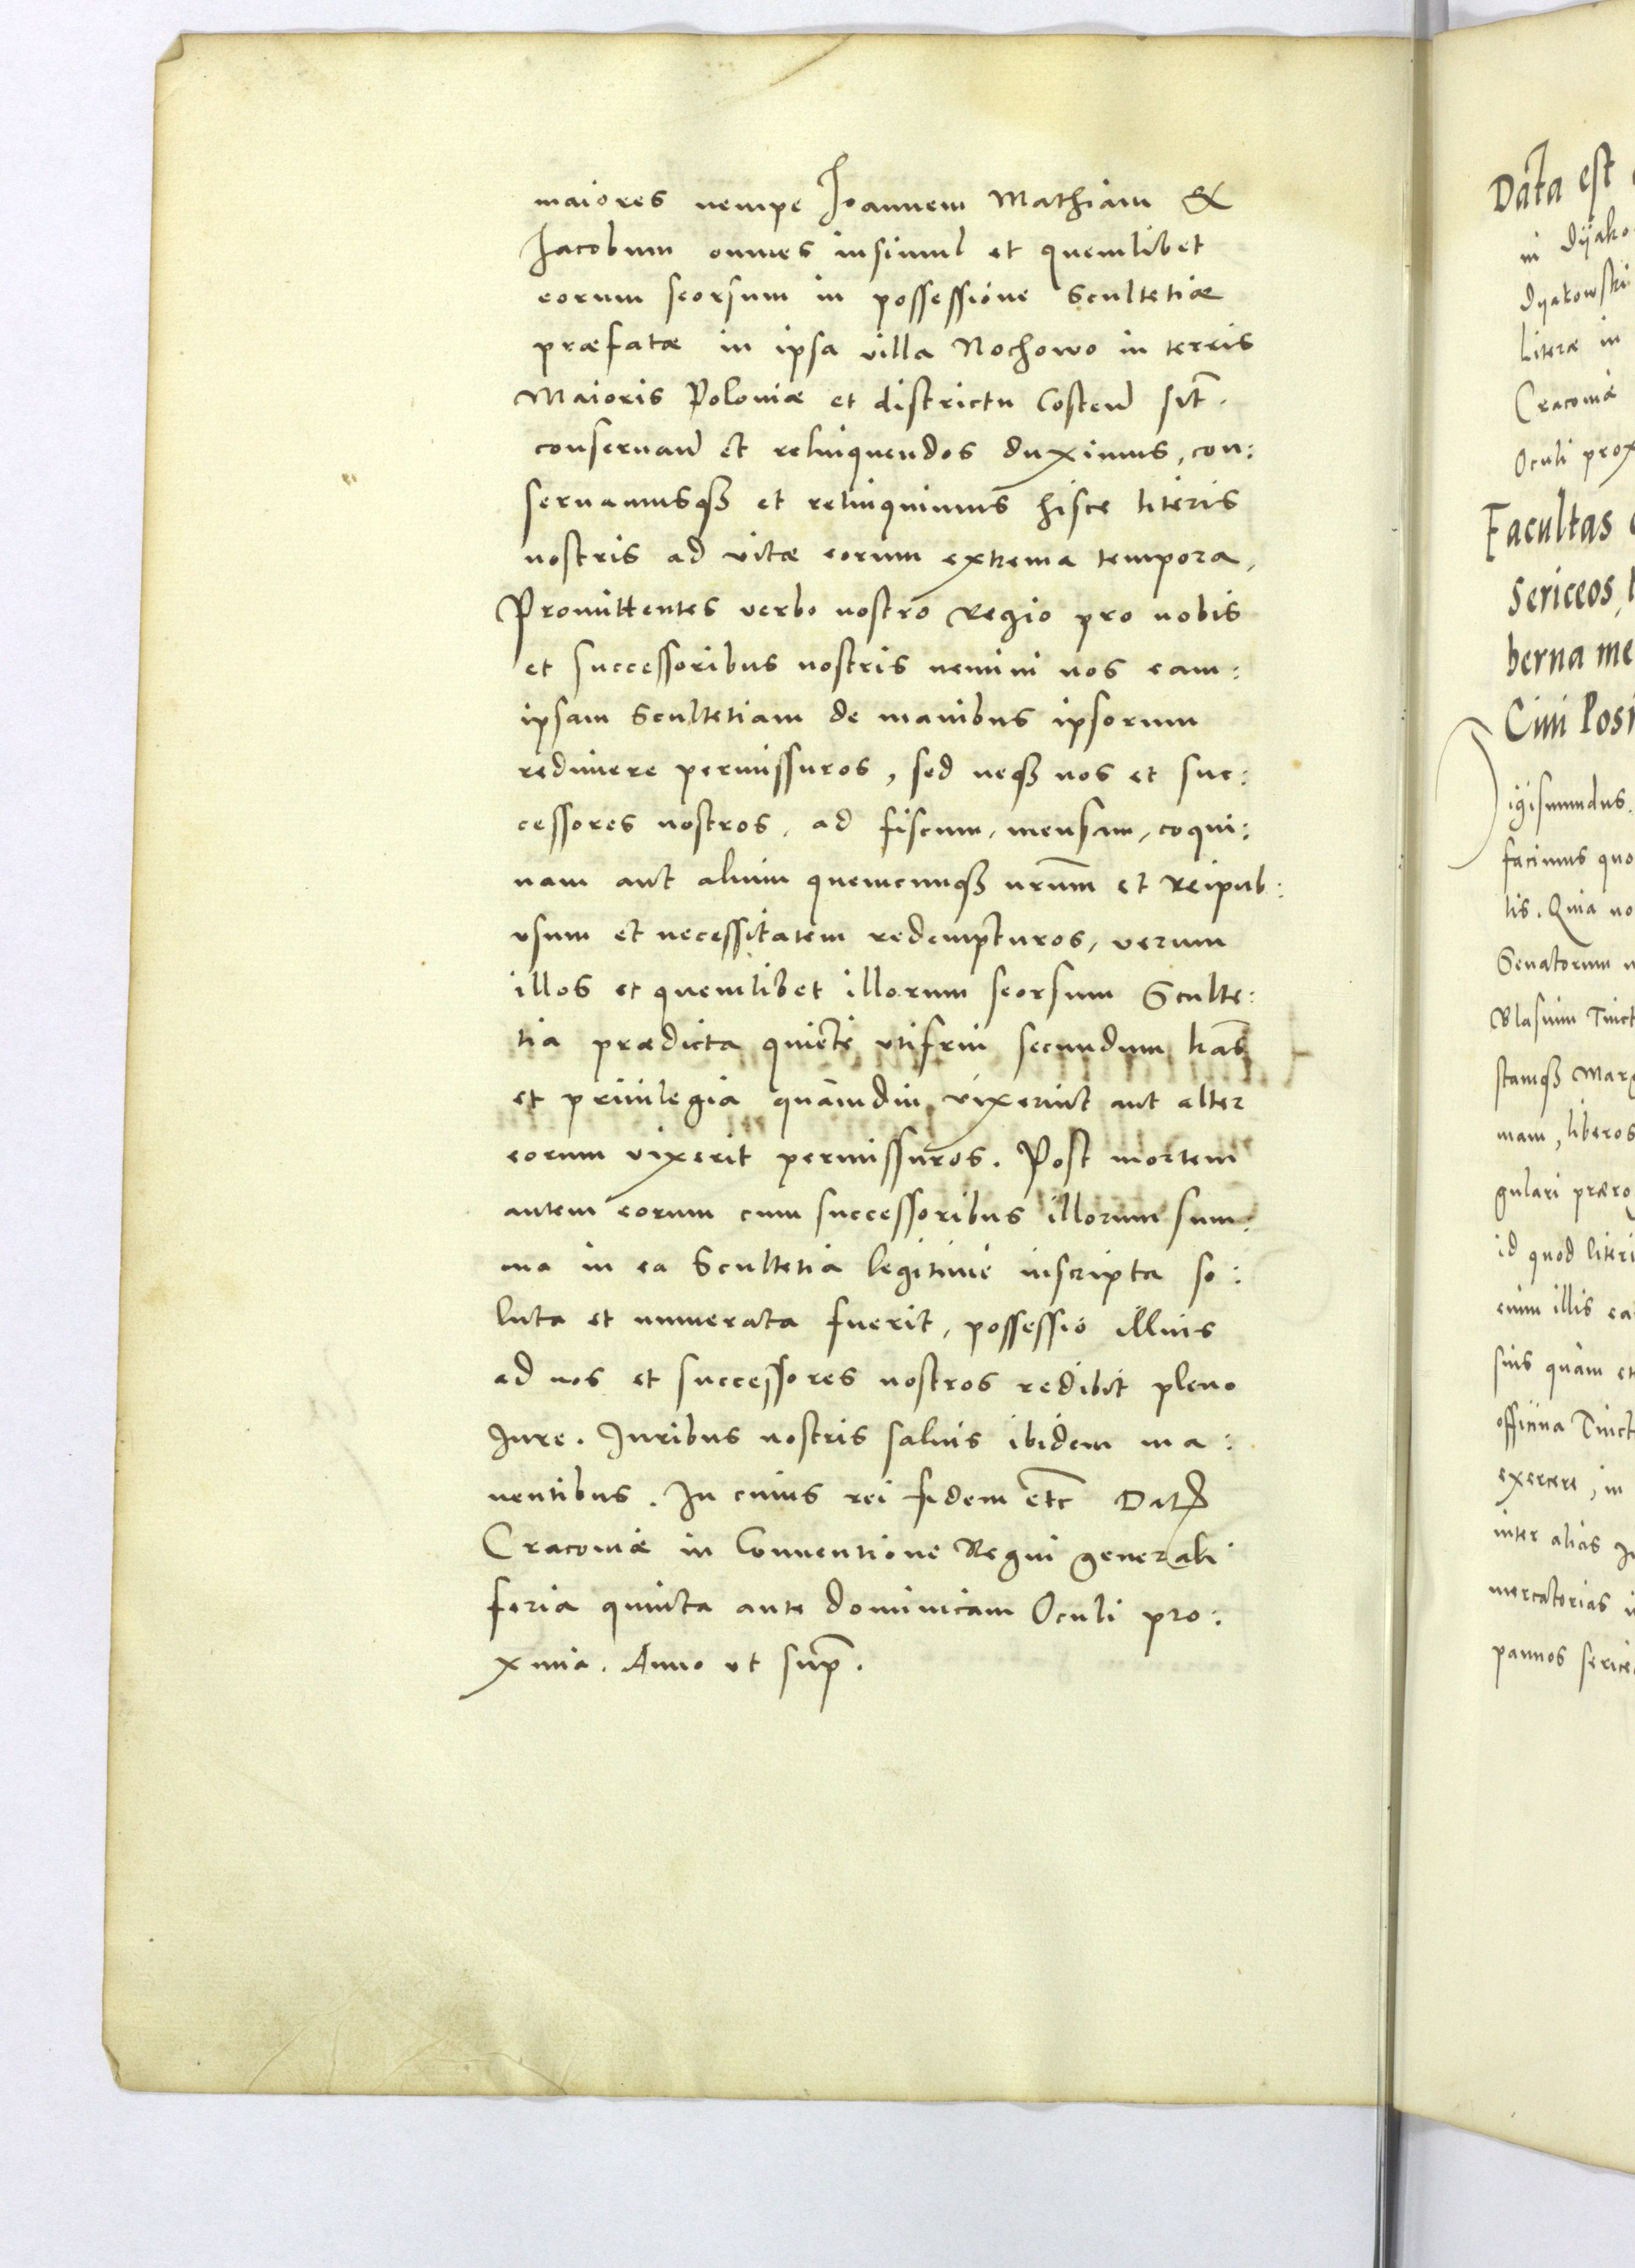 maiores nempe Joannem Mathiam &
Jacobum omnes insimul et quemlibet
eorum seorsum in possessione Scultetiæ
præfatæ in ipsa villa Nochowo in terris
Maioris Poloniæ et districtu Costeñ sit̃.
conseruañ et relinquendos duximus, con:
seruamusqꝫ et relinquimus hisce literis
nostris ad vitæ eorum extrema tempora,
Promittentes verbo nostro Regio pro nobis
et successoribus nostris nemini nos eam:
ipsam Scultetiam de manibus ipsorum
redimere permissuros, sed neqꝫ nos et suc:
cessores nostros, ad fiscum, mensam, coqui:
nam aut alium quemcunqꝫ nrum̃ et Reipub:
vsum et necessitatem redempturos, verum
illos et quemlibet illorum seorsum Sculte:
tia prædicta quiete vtifrui secundum lrãs
et priuilegia quamdiu vixerint aut alter
eorum vixerit permissuros. Post mortem
autem eorum cum successoribus illorum sum:
ma in ea Scultetia legitime inscripta so:
luta et numerata fuerit, possessio illius
ad nos et successores nostros redibit pleno
Jure. Juribus nostris saluis ibidem ma:
nentibus. In cuius rei fidem etc̃ Datꝭ
Cracoviæ in Conuentione Regni generali
feria quinta ante dominicam Oculi pro:
xima. Anno vt sup̃.
Data est
in Dyako
Dyakowski
Literæ in
Cracoviæ
Oculi prox
Facultas
Sericeos,
berna me
Cini Posn
igismundus.
facimus quo
tis. Quia no
Senatorum n
Blasium Tinct
stamqꝫ Marg
mam, liberos
gulari prærog
id quod literi
enim illis ea
suis quam et
officina Tinct
exercere, in
inter alias
mercatorias
pannos serice